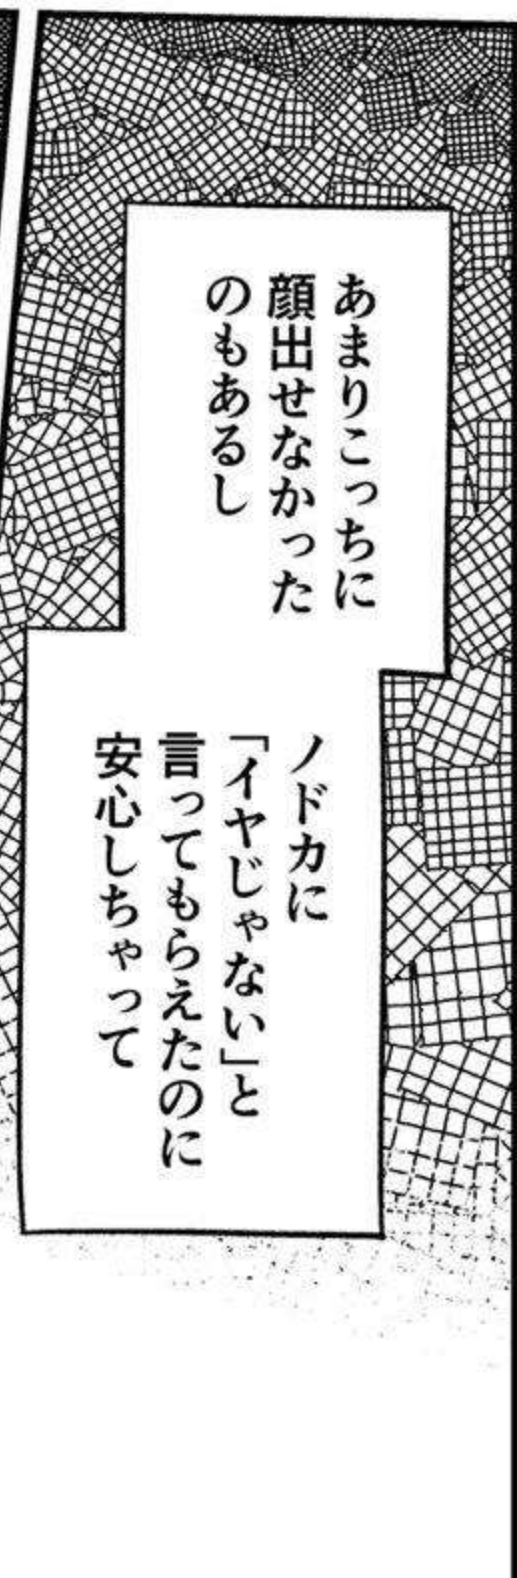 あまりこっちに
顔出せなかった
のもあるし
ノドカに
「イヤじゃない」と
言ってもらえたのに
安心しちゃって